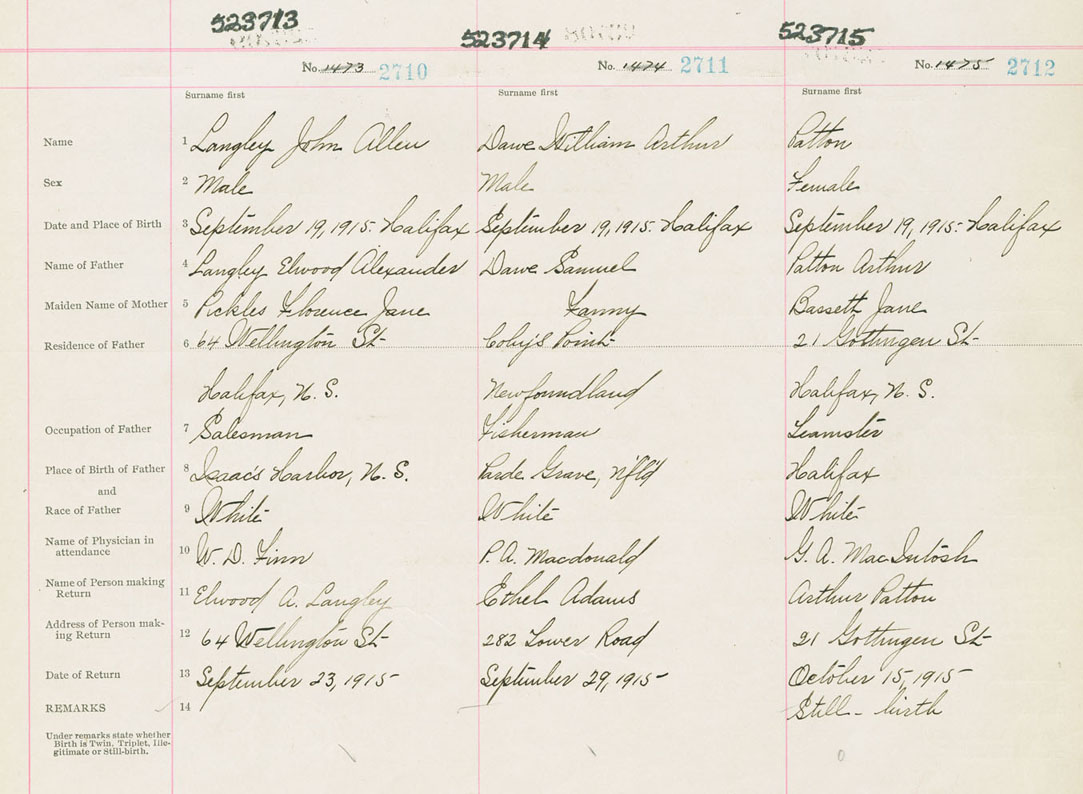 523713
523714
523715
No. 1473 2710
No. 1474 2711
No. 1475 2712
Surname first Surname first Surname first
Name 1 Langley John Allen Dawe William Arthur Patton
Sex 2 Male Male Female
Date and Place of Birth 3 September 19, 1915 - Halifax September 19, 1915 - Halifax September 19, 1915 - Halifax
Name of Father 4 Langley Elwood Alexander Dawe Samuel Patton Arthur
Maiden Name of Mother 5 Pickles Florence Jane Fanny Bassett Jane
Residence of Father 6 64 Wellington St Point 21 Gottingen St
Halifax, N. S. Newfoundland Halifax, N. S.
Occupation of Father 7 Salesman Fisherman Teamster
Place of Birth of Father 8 Isaac's Harbor, N. S. Grave, Nfld Halifax
and
Race of Father 9 White White White
Name of Physician in
attendance 10 W. D. Finn P. A. Macdonald G. A. MacIntosh
Name of Person making
Return 11 Elwood A. Langley Ethel Adams Arthur Patton
Address of Person mak-
ing Return 12 64 Wellington St 282 Lower Road 21 Gottingen St
Date of Return 13 September 23, 1915 September 29, 1915 October 15, 1915
REMARKS 14 Still-birth
Under remarks state whether
Birth is Twin, Triplet, Ille-
gitimate or Still-birth.